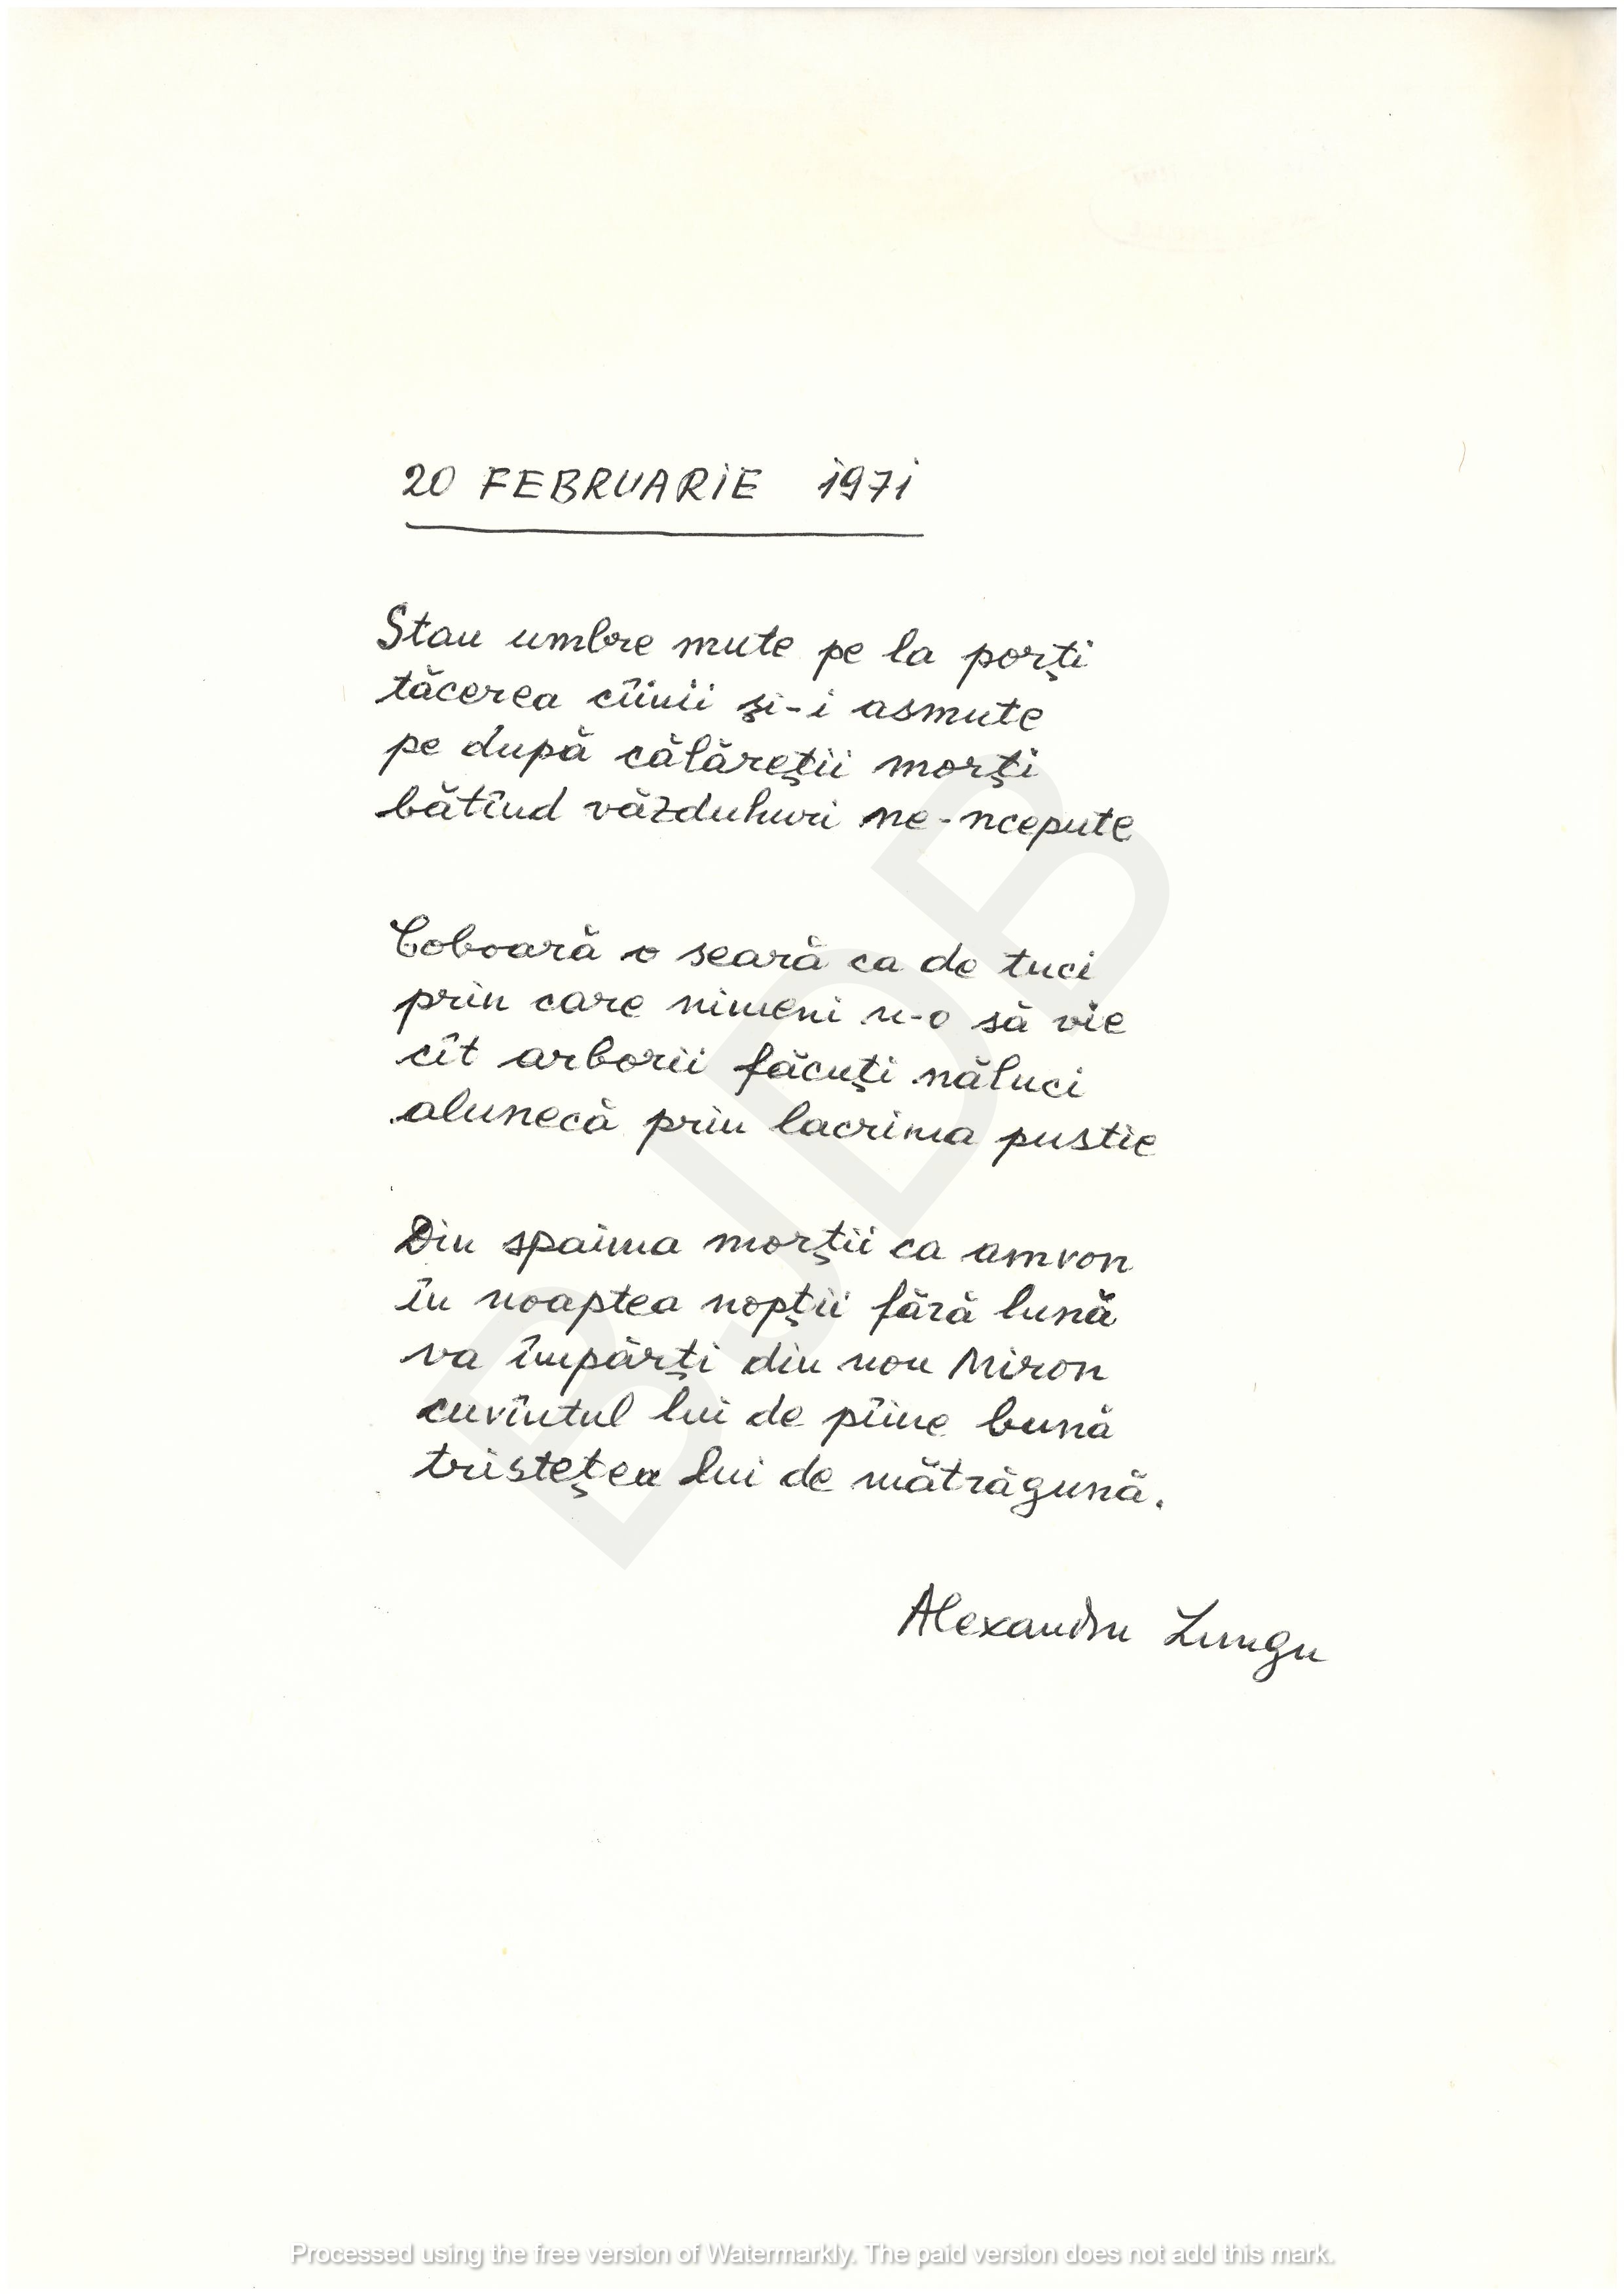 20 FEBRUARIE 1971
Stau umbre mute pe la porţi
tăcerea cîinii şi-i asmute
pe după călăreţii morţi
bătînd văzduhuri ne-ncepute
Coboară o seară ca de tuci
prin care nimeni n-o să vie
cît arborii făcuţi năluci
alunecă prin lacrima pustie
Din spaima morţii ca amvon
în noaptea nopţii fără lună
va împărţi din nou Miron
cuvîntul lui de pîine bună
tristeţea lui de mătrăgună.
Alexandru Lungu
BJDB
Processed using the free version of Watermarkly. The paid version does not add this mark.